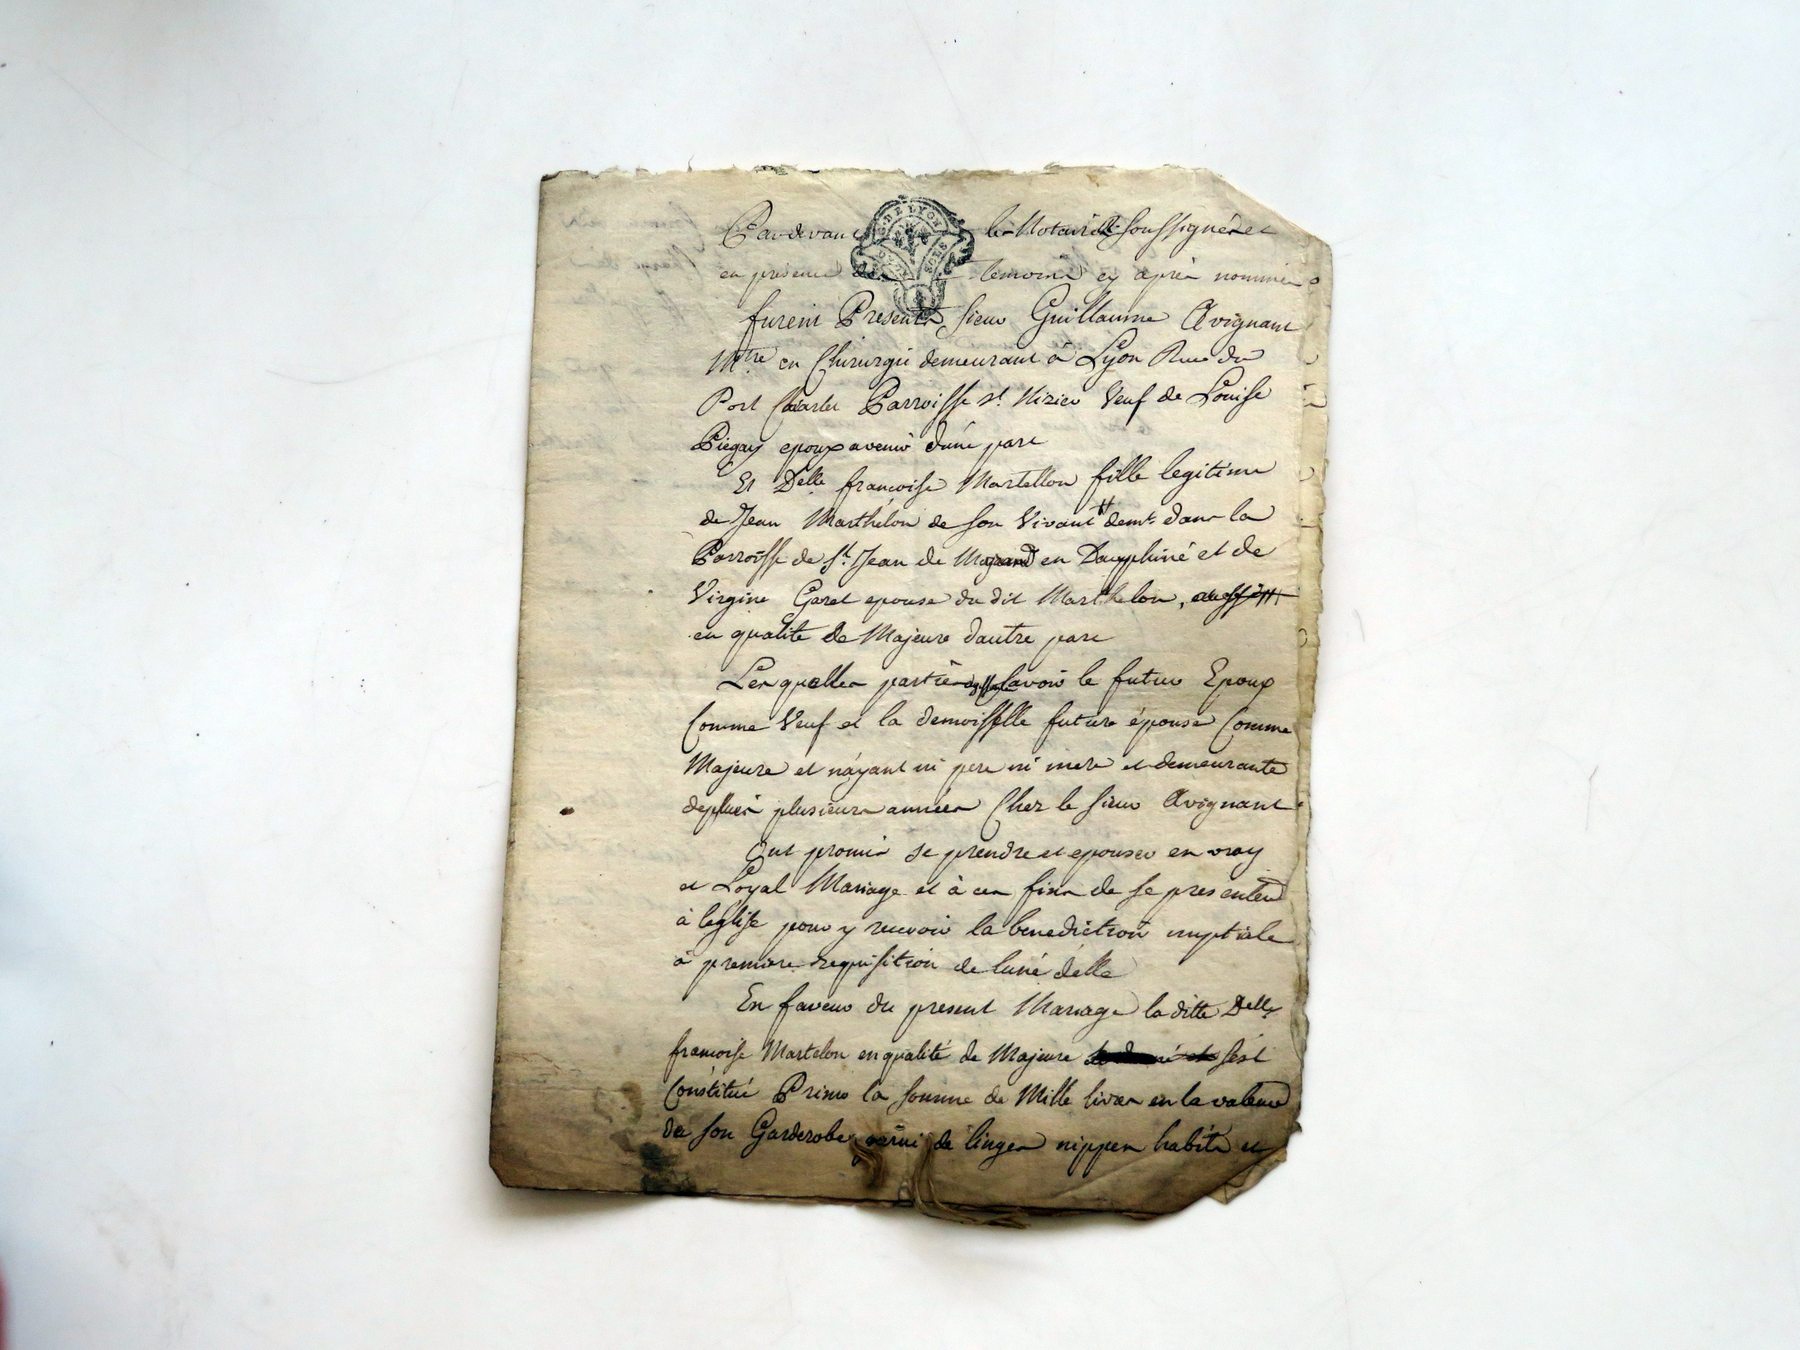 Pardevant les Notaires soussignés et
en presence des temoins cy après nommés
furent Presents sieur Guillaume Avignant
Mtre en Chirurgie demeurant à Lyon Rue du
Port Charlet Parroisse st. Nizier Veuf de Louise
Piegay epoux avenir dune part
Et Delle francoise Martellon fille legitime
de Jean Marthelon de son Vivant demt. dans la
Parroisse de st. Jean de en Dauphiné et de
Virginie Garet epouse du dit Marthelon,
en qualité de Majeure dautre part
Lesquelles parties savoir le futur Epoux
Comme Veuf et la demoisselle future épouse Comme
Majeure et náyant ni pere ni mere et demeurante
depuis plusieurs années Chez le sieur Avignant
Ont promis se prendre et epouser en vray
et Loyal Mariage et à ces fins de se presenter
à léglise pour y recevoir la benediction nuptiale
à premiere requisition de luné delle
En faveur du present Mariage la ditte Delle
francoise Martelon en qualité de Majeure sést
Constitué Primo la somme de Mille livres en la valeur
de son Garderobe garni de linges nippes habits et
DE LYON